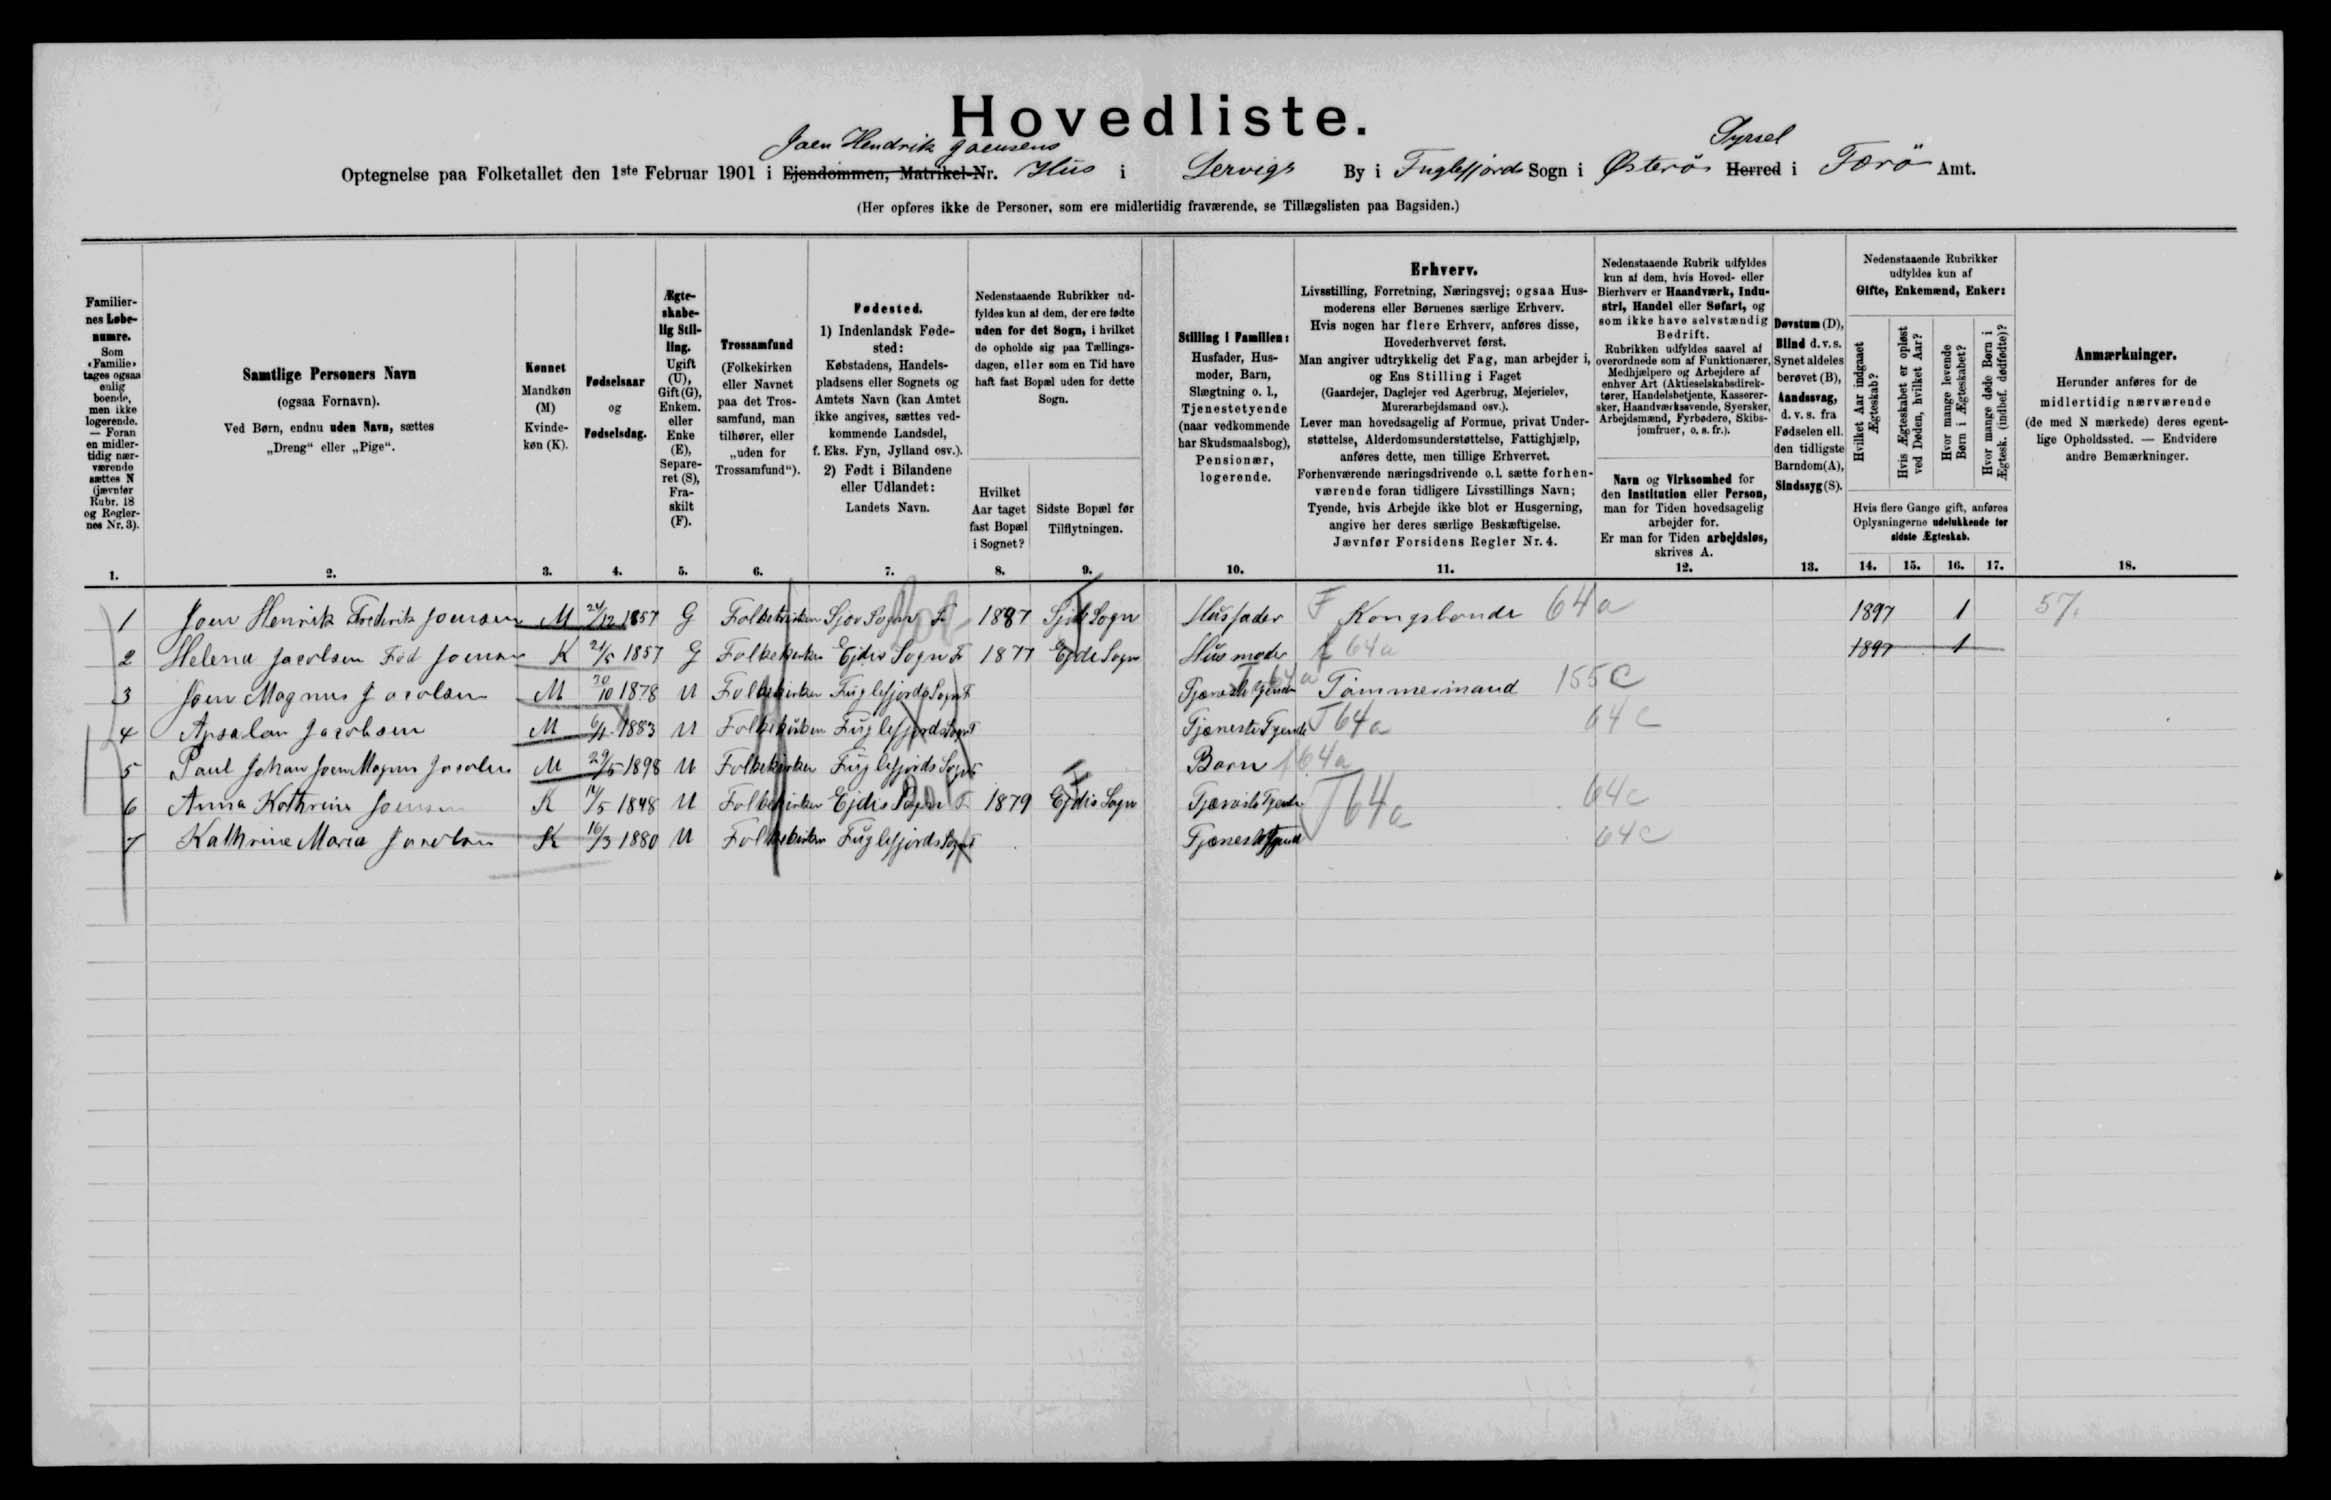 Hovedliste.
Joen Hendrik Joensens
Syssel
Optegnelse paa Folketallet den 1ste Februar 1901 i Ejendommen, Matrikel-Nr. Hus i Lervigs By i Fuglefjords Sogn i Østerøs Herred i Færø Amt.
(Her opføres ikke de Personer, som ere midlertidig fraværende, se Tillægslisten paa Bagsiden.)
Familier-
nes Løbe-
numre.
Som
«Familie»
tages ogsaa
enlig
boende,
men ikke
logerende.
— Foran
en midler-
tidig nær-
værende
sættes N
(jævnfør
Rubr. 18
og Regler-
nes Nr. 3).
1.
Samtlige Personers Navn
(ogsaa Fornavn).
Ved Børn, endnu uden Navn, sættes
„Dreng“ eller „Pige“.
2.
Kønnet
Mandkøn
(M)
Kvinde-
køn (K).
3.
Fødselsaar
og
Fødselsdag.
4.
Ægte-
skabe-
lig Stil-
ling.
Ugift
(U),
Gift (G),
Enkem.
eller
Enke
(E),
Separe-
ret (S),
Fra-
skilt
(F).
5.
Trossamfund
(Folkekirken
eller Navnet
paa det Tros-
samfund, man
tilhører, eller
„uden for
Trossamfund“).
6.
Fødested.
1) Indenlandsk Føde-
sted:
Købstadens, Handels-
pladsens eller Sognets og
Amtets Navn (kan Amtet
ikke angives, sættes ved-
kommende Landsdel,
f. Eks. Fyn, Jylland osv.).
2) Født i Bilandene
eller Udlandet:
Landets Navn.
7.
Nedenstaaende Rubrikker ud-
fyldes kun af dem, der ere fødte
uden for det Sogn, i hvilket
de opholde sig paa Tællings-
dagen, eller som en Tid have
haft fast Bopæl uden for dette
Sogn.
Hvilket
Aar taget
fast Bopæl
i Sognet?
8.
Sidste Bopæl før
Tilflytningen.
9.
Stilling i Familien:
Husfader, Hus-
moder, Barn,
Slægtning o. l.,
Tjenestetyende
(naar vedkommende
har Skudsmaalsbog),
Pensionær,
logerende.
10.
Erhverv.
Livsstilling, Forretning, Næringsvej; ogsaa Hus-
moderens eller Børnenes særlige Erhverv.
Hvis nogen har flere Erhverv, anføres disse,
Hovederhvervet først.
Man angiver udtrykkelig det Fag, man arbejder i,
og Ens Stilling i Faget
(Gaardejer, Daglejer ved Agerbrug, Mejerielev,
Murerarbejdsmand osv.).
Lever man hovedsagelig af Formue, privat Under-
støttelse, Alderdomsunderstøttelse, Fattighjælp,
anføres dette, men tillige Erhvervet.
Forhenværende næringsdrivende o.l. sætte forhen-
værende foran tidligere Livsstillings Navn;
Tyende, hvis Arbejde ikke blot er Husgerning,
angive her deres særlige Beskæftigelse.
Jævnfør Forsidens Regler Nr. 4.
11.
Nedenstaaende Rubrik udfyldes
kun af dem, hvis Hoved- eller
Bierhverv er Haandværk, Indu-
stri, Handel eller Søfart, og
som ikke have selvstændig
Bedrift.
Rubrikken udfyldes saavel af
overordnede som af Funktionærer,
Medhjælpere og Arbejdere af
enhver Art (Aktieselskabsdirek-
tører, Handelsbetjente, Kasserer-
sker, Haandværkssvende, Syersker,
Arbejdsmænd, Fyrbødere, Skibs-
jomfruer, o. s. fr.).
Navn og Virksomhed for
den Institution eller Person,
man for Tiden hovedsagelig
arbejder for.
Er man for Tiden arbejdsløs,
skrives A.
12.
Døvstum (D),
Blind d. v. s.
Synet aldeles
berøvet (B),
Aandssvag,
d. v. s. fra
Fødselen ell.
den tidligste
Barndom (A),
Sindssyg (S).
13.
Nedenstaaende Rubrikker
udfyldes kun af
Gifte, Enkemænd, Enker:
Hvilket Aar indgaaet
Ægteskab?
Hvis Ægteskabet er opløst
ved Døden, hvilket Aar?
Hvor mange levende
Børn i Ægteskabet?
Hvor mange døde Børn i
Ægtesk. (indbef. dødfødte)?
Hvis flere Gange gift, anføres
Oplysningerne udelukkende for
sidste Ægteskab.
14. 15. 16. 17.
Anmærkninger.
Herunder anføres for de
midlertidig nærværende
(de med N mærkede) deres egent-
lige Opholdssted. — Endvidere
andre Bemærkninger.
18.
1 Joen Henrik Fredrik Joensen M 24/12 1857 G Folkekirken Sjov Sogn F 1887 Sogn Husfader F Kongsbonde 64 a 1897 1 57.
2 Helena Jacobsen Fød Joensen K 21/5 1857 G Folkekirken Ejdes Sogn F 1877 Ejde Sogn Husmoder f 64 a 1897 1
3 Joen Magnus Jacobsen M 30/10 1878 U Folkekirken Fuglefjords Sogn F Tjeneste Tyende T 64 a Tømmermand 155 C
4 Apsalon Jacobsen M 6/1 1883 U Folkekirken Fuglefjords Sogn F Tjeneste Tyende T 64 a 64 C
5 Paul Johan Joen Magnus Jacobsen M 29/5 1898 U Folkekirken Fuglefjords Sogn F Barn f 64 a
6 Anna Kathrine Joensen K 11/5 1848 U Folkekirken Ejdes Sogn F 1879 Ejdes Sogn Tjeneste Tyende T 64 a 64 c
7 Kathrine Maria Jacobsen K 16/3 1880 U Folkekirken Fuglefjords Sogn F Tjeneste Tyende 64 C